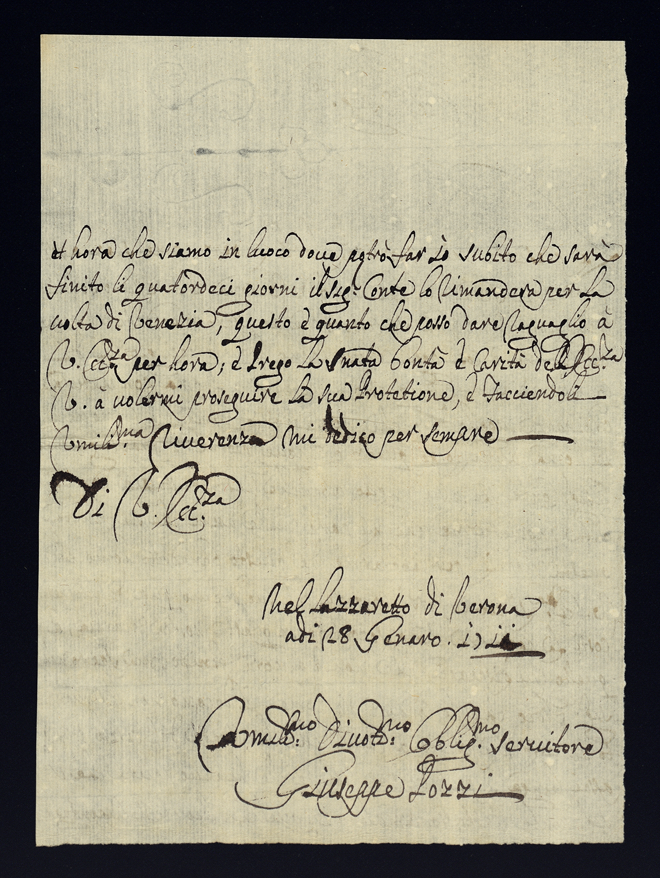 et hora che siamo in luoco doue potrò far io subito che sarà
finito li quatordeci giorni il sig:r Conte lo rimanderà per la
uolta di Venezia, questo è quanto che posso dare raguaglio à
V. Ecc.za per hora; è Prego La Inata bontà è Carità dell Ecc.za
V. à uolermi proseguire La sua Protetione, è Facciendoli
Vmilis.ma Riuerenza Mi dedico per sempre
Di V. Ecc.za
Nel Lazzaretto di Verona
adi 28 Genaro. 1711
Vmilis:mo Diuotis:mo Oblig.mo seruitore
Giuseppe Pozzi